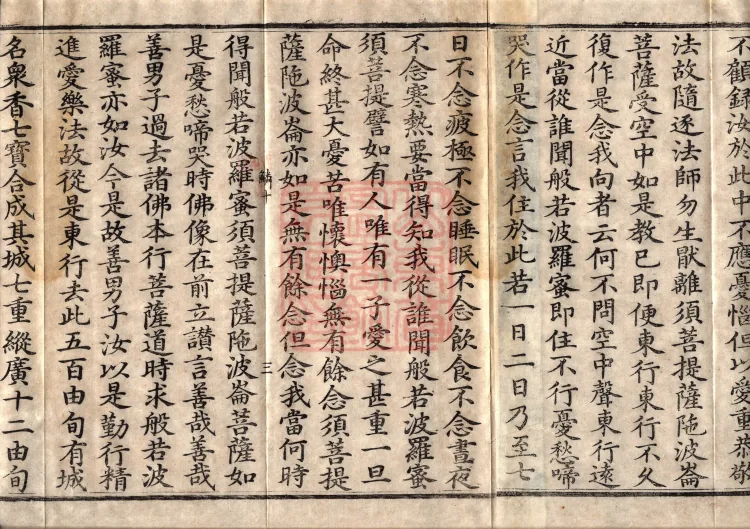 不顧錄汝於此中不應憂惱但以愛重恭敬
法故隨逐法師勿生猒離須菩提薩陁波崙
菩薩受空中如是教已即便東行東行不久
復作是念我向者云何不問空中聲東行遠
近當從誰聞般若波羅蜜即住不行憂愁啼
哭作是念言我住於此若一日二日乃至七
日不念疲極不念睡眠不念飲食不念晝夜
不念寒熱要當得知我從誰聞般若波羅蜜
須菩提譬如有人唯有一子愛之甚重一旦
命終甚大憂苦唯懷懊惱無有餘念須菩提
薩陁波崙亦如是無有餘念但念我當何時
得聞般若波羅蜜須菩提薩陁波崙菩薩如
是憂愁啼哭時佛像在前立讃言善哉善哉
善男子過去諸佛本行菩薩道時求般若波
羅蜜亦如汝今是故善男子汝以是勤行精
進愛樂法故從是東行去此五百由旬有城
名衆香七寶合成其城七重縱廣十二由旬